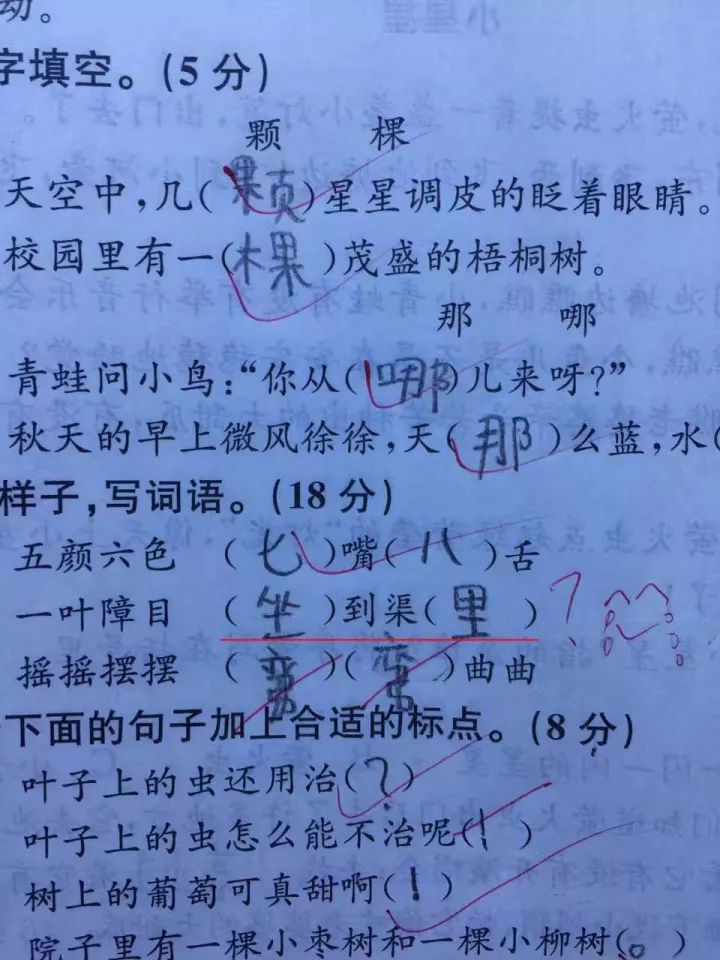 动。
字填空。(5分)
颗 棵
天空中,几(颗)星星调皮的眨着眼睛。
校园里有一(棵)茂盛的梧桐树。
那 哪
青蛙问小鸟:“你从(哪)儿来呀?”
秋天的早上微风徐徐,天(那)么蓝,水(
样子,写词语。(18分)
五颜六色 (七)嘴(八)舌
一叶障目 (坐)到渠(里)?
摇摇摆摆 (弯)(弯)曲曲
下面的句子加上合适的标点。(8分)
叶子上的虫还用治(?)
叶子上的虫怎么能不治呢(!)
树上的葡萄可真甜啊(!)
院子里有一棵小枣树和一棵小柳树(。)